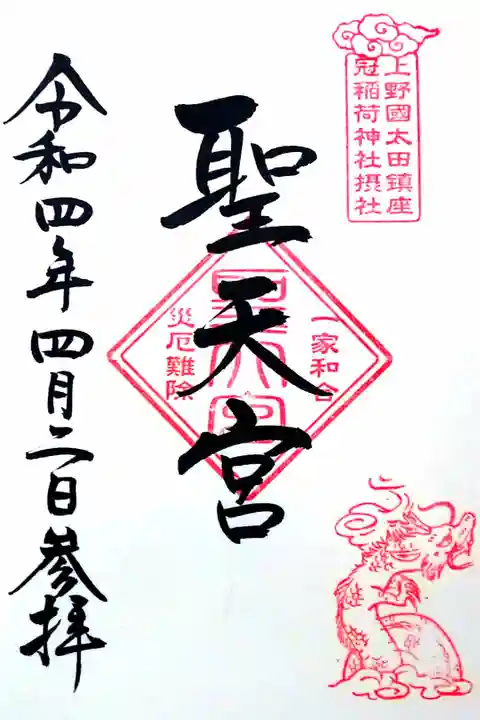 上野國太田鎮座
冠稲荷神社摂社
聖天宮
一家和合
災厄難除
聖天宮
令和四年四月二日参拝